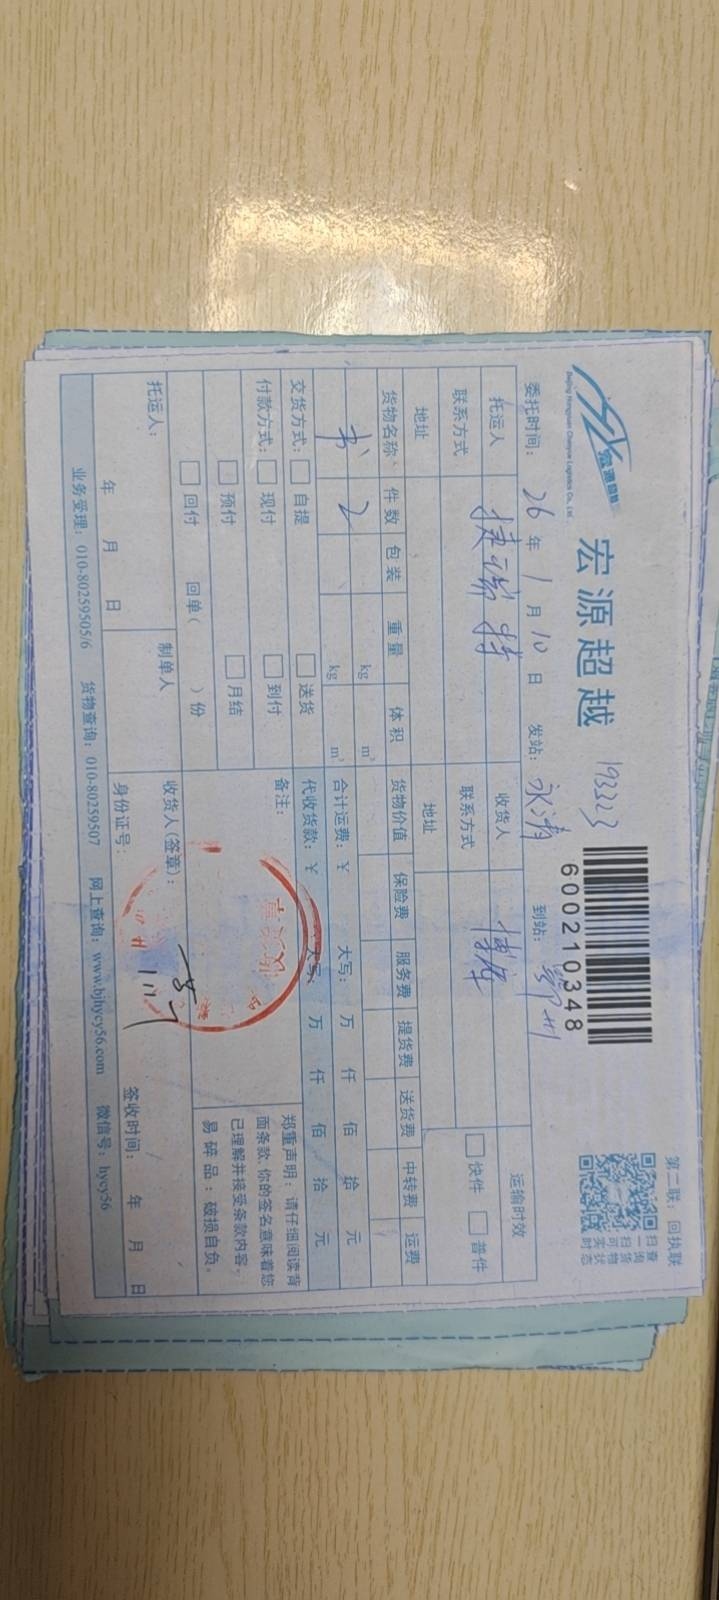 第二联：回执联
宏源超越
Beijing Hongyuan Chaoyue Logistics Co., Ltd.
宏源超越 193223
600210348
扫一扫 查询货物实时状态
委托时间：26年1月10日 发站：永清 到站：鄂州
托运人 捷瑞特 收货人 博库 运输时效
联系方式 联系方式 快件 普件
地址 地址
货物名称 件数 包装 重量 体积 货物价值 保险费 服务费 提货费 送货费 中转费 运费
书 2 kg m³
kg m³
合计运费：¥ 大写： 万 仟 佰 拾 元
交货方式： 自提 送货 代收货款：¥ 大写： 万 仟 佰 拾 元
付款方式： 现付 到付 备注：
预付 月结
回付 回单（ ）份
郑重声明：请仔细阅读背
面条款，你的签名意味着您
已理解并接受条款内容。
易碎品：破损自负。
托运人： 制单人 收货人(签章)：
年 月 日 身份证号： 签收时间： 年 月 日
业务受理：010-80259505/6 货物查询：010-80259507 网上查询：www.bjhycy56.com 微信号：hycy56